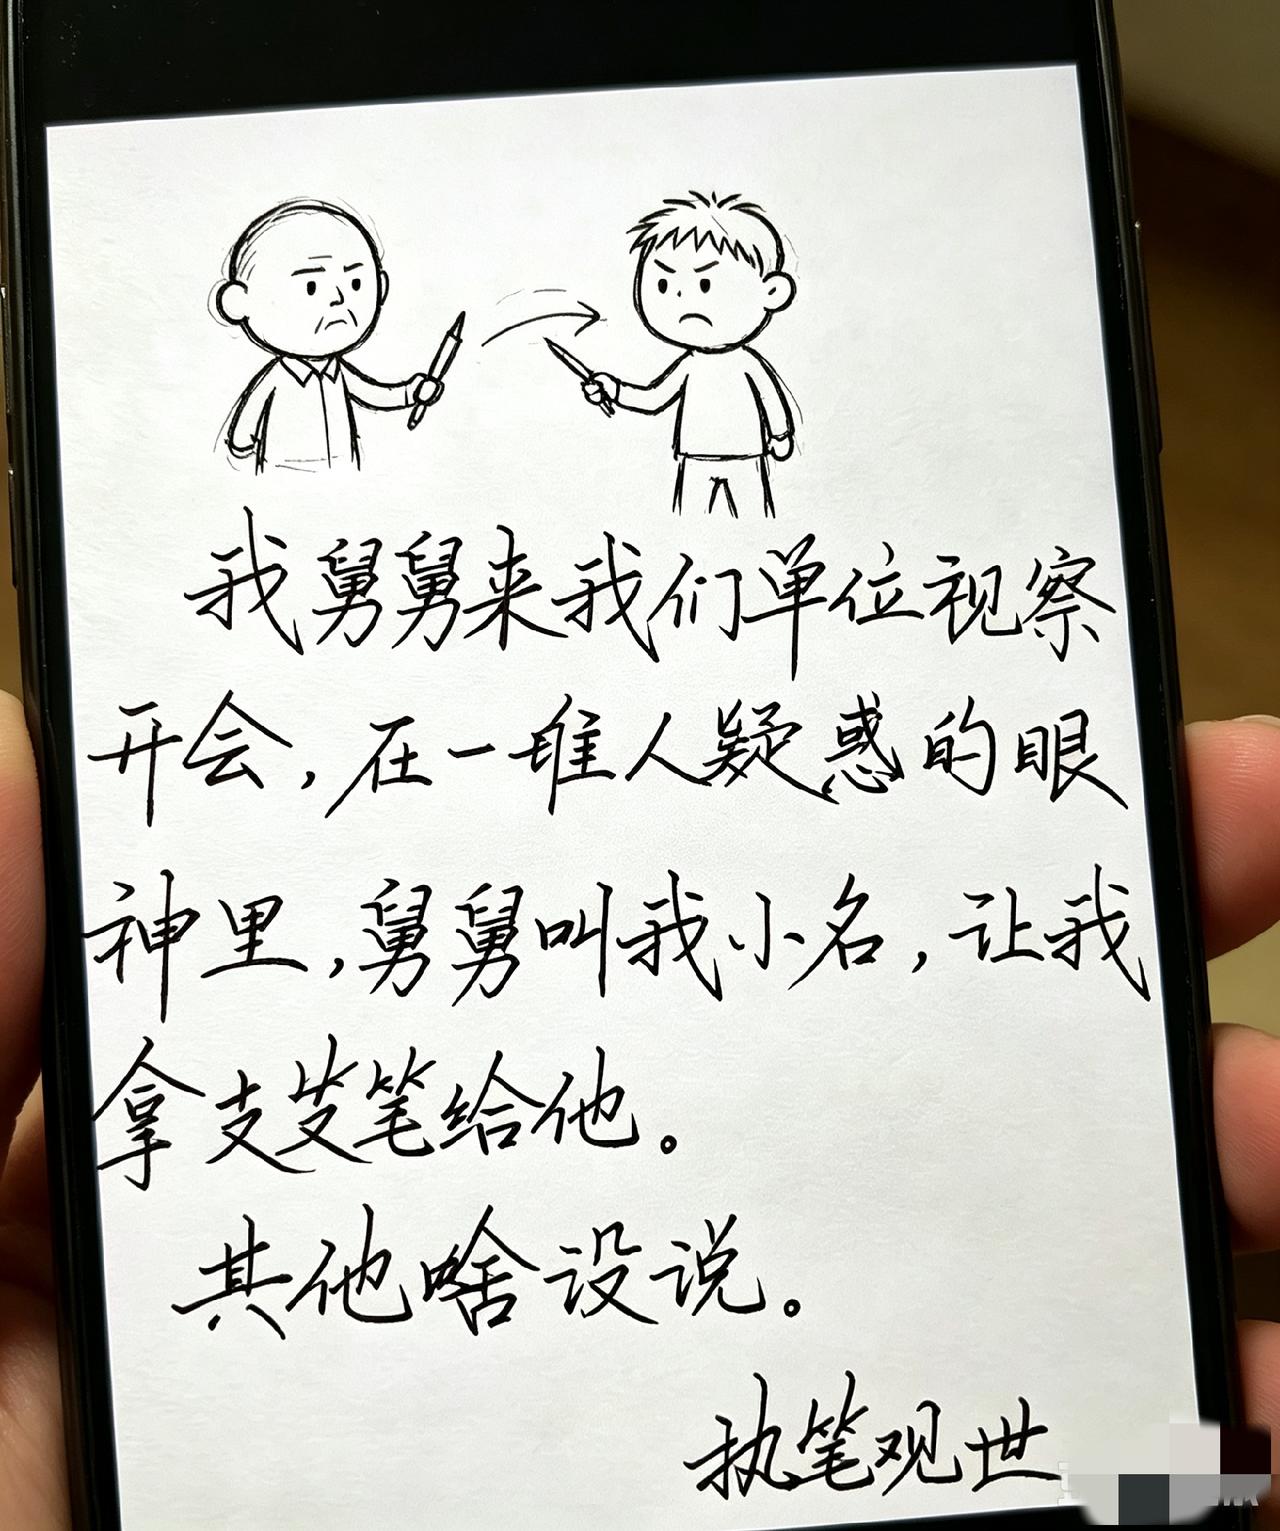 我舅舅来我们单位视察
开会，在一堆人疑惑的眼
神里，舅舅叫我小名，让我
拿支笔给他。
其他啥没说。
执笔观世